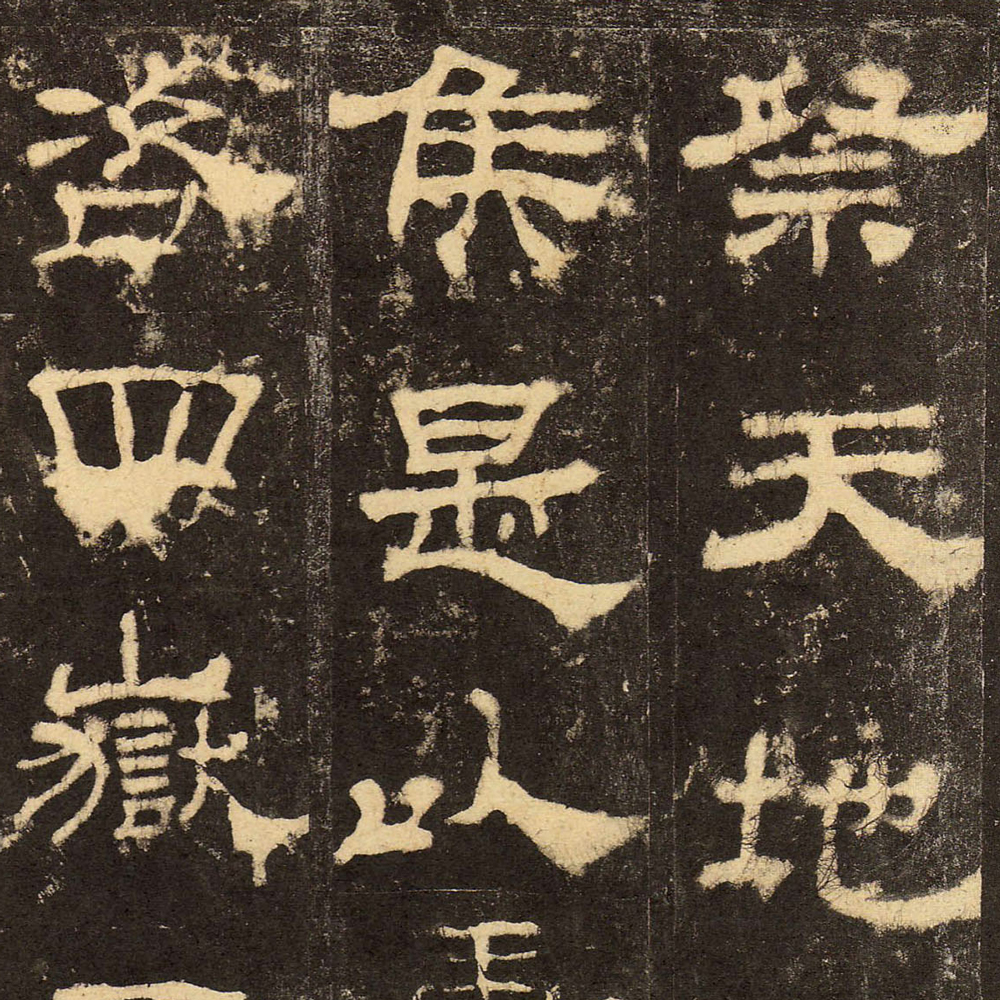 祭天地
侯是以
咨四嶽